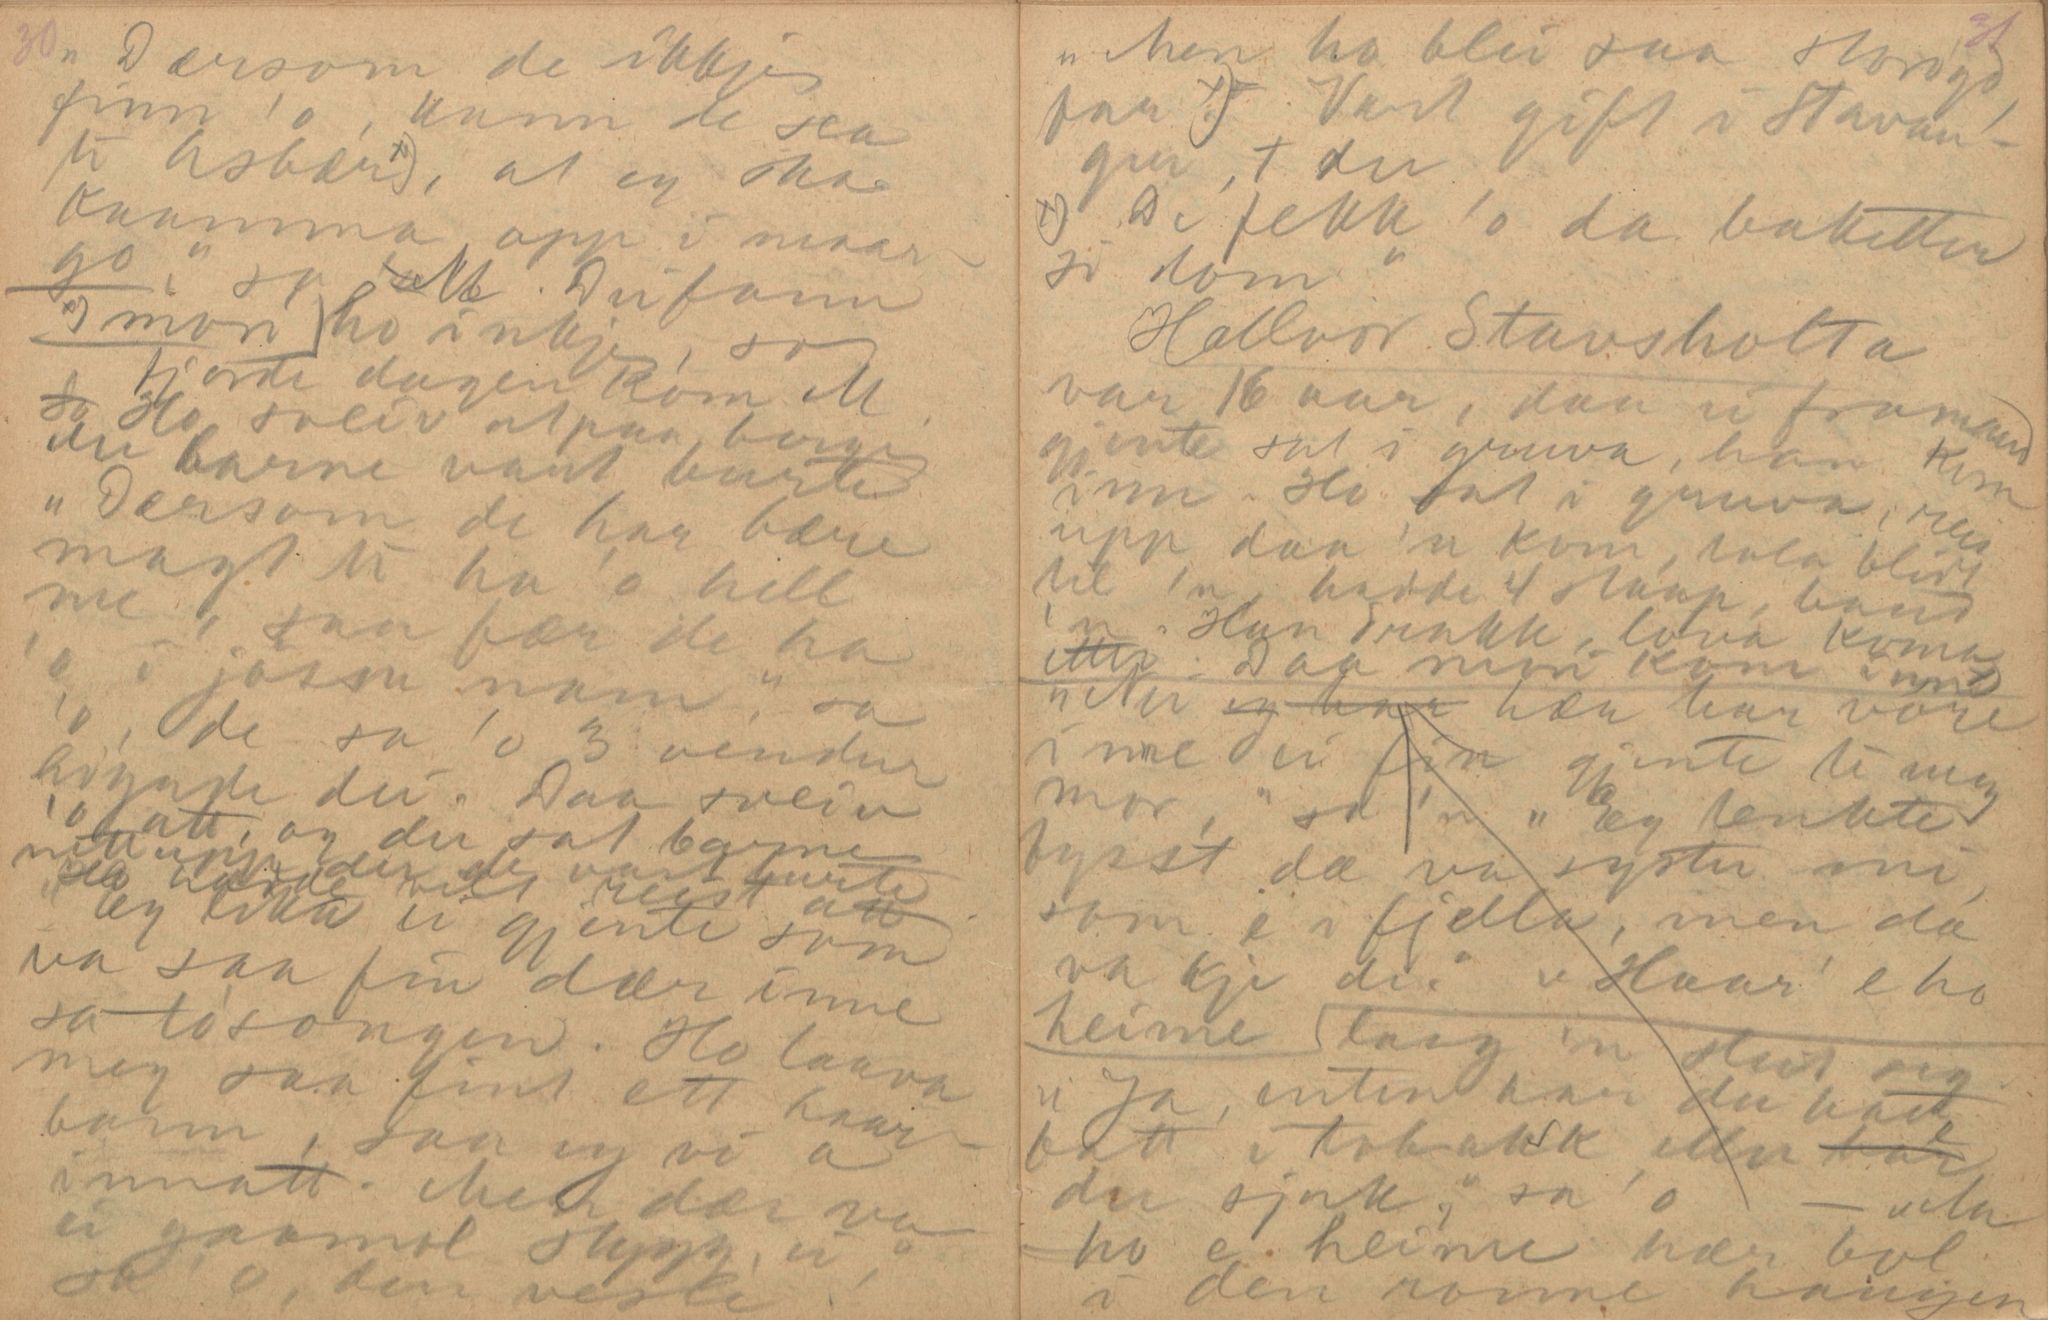 30
„Dersom de ikkje
finn 'o, kunn de sea
ti Asbær x), at eg ska
kaamma opp i maar-
go," sa M. Dei fann
x) mori ho inkje, so
fjorde dagen kom M.
so Ho sveiv utpaa bergi
der barne vart burte
„Dersom de har bære
magt ti ha 'o hell
me, saa fær de ha
'o i jøssu nam," sa
'o, de sa 'o 3 vendur
høgade dei. Daa sveiv
'o att, og der sat barne
nett uppi der de vart burte
va saa fin dær inne
sa tosongen. Ho laava
meg saa fint ett haar-
bann, saa eg vi a
innatt. Men dær va
ei gaamol stygg, ei,"
sa 'o, den vesle!
31
„Men ho blei saa storøgd,
x) Vart gift i Stavan-
ger, + der
x) De fekk 'o da baketter
si dom"
Hallvor Stavsholta
var 16 aar, daa ei framand
gjente sat i gruva, han kom
inn. Ho sat i gruva, reis
upp daa 'n kom, tala blidt
til 'n, hadde 4 staup, baud
'n. Han drakk, lova koma
etter. Daa mori kom inn
„Nei eg har hær har vore
inne ei fin gjente ti meg
mor," sa 'n „Eg tenkte
fysst dæ va syster mi,
som e i fjella, men dæ
va kje di." „Haar' e ho
heime
„Ja, enten har du
fatt i tobakk eller har
du sjuk," sa 'o —
ho e heime hær
i den haugjen